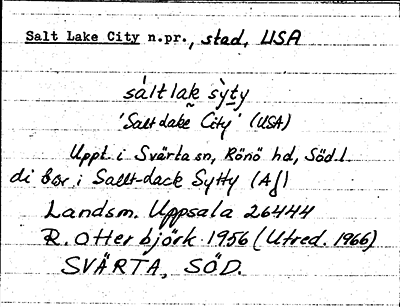 Salt Lake City n.pr., stad, USA
sàltlak sỳty
'Salt dake City' (USA)
Uppt. i Svärta sn, Rönö hd, Söd.l.
di bor i Sallt-dack Sytty (Af)
Landsm. Uppsala 26444
R. Otterbjörk 1956 (Utred. 1966)
SVÄRTA, SÖD.